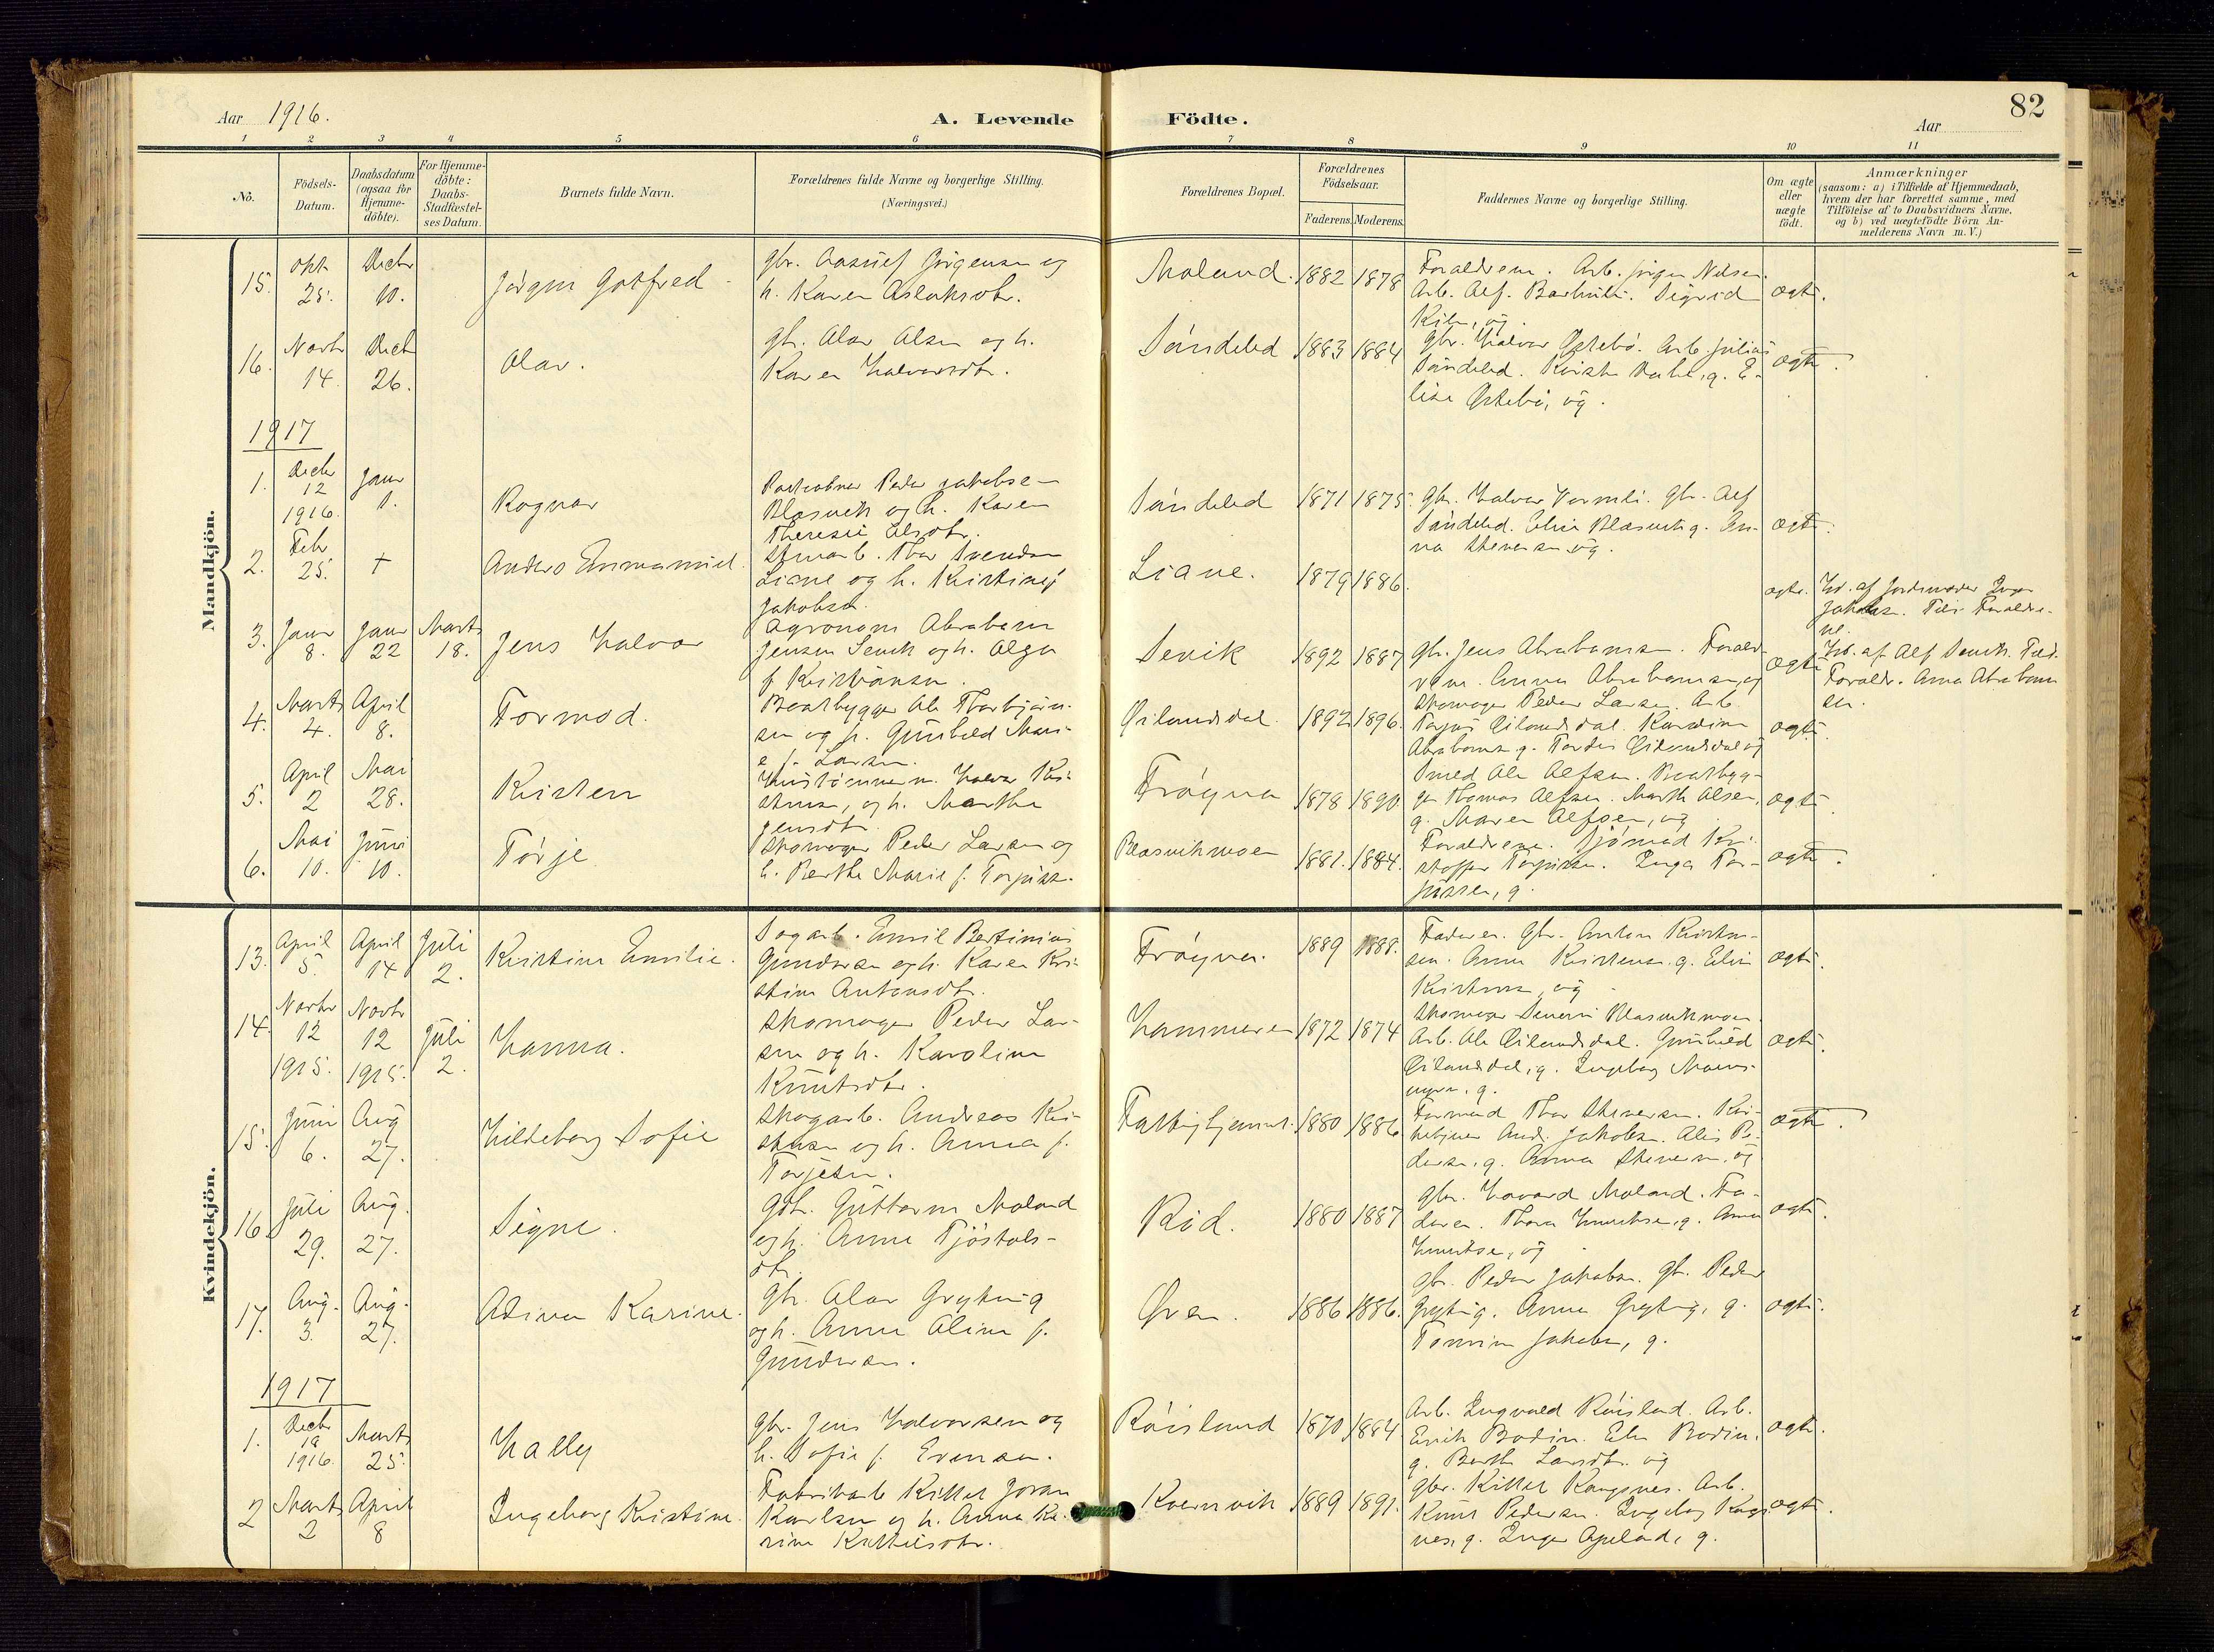 Aar 1916.
A. Levende
Födte.
Aar
82
1
2
3
4
5
6
7
8
9
10
11
No.
Födsels-
Datum.
Daabsdatum
(ogsaa for
Hjemme-
döbte).
For Hjemme-
döbte:
Daabs-
Stadfæstel-
ses Datum.
Barnets fulde Navn.
Forældrenes fulde Navne og borgerlige Stilling.
(Næringsvei.)
Forældrenes Bopæl.
Forældrenes
Födselsaar.
Faderens.
Moderens.
Faddernes Navne og borgerlige Stilling.
Om ægte
eller
uægte
födt.
Anmærkninger
(saasom: a) i Tilfælde af Hjemmedaab,
hvem der har forrettet samme, med
Tilföielse af to Daabsvidners Navne.
og b) ved uægtefödte Börn An-
melderens Navn m. V.)
Mandkjön.
15.
Okt.
25.
Decbr
10.
Jörgen Gotfred
gbr. Aasulf Jörgensen og
h. Karen Aslaksdtr.
Moland.
1882
1878
Forældrene. Arb. Jörgen Nilsen.
Arb. Alf. Sigrid
ægte.
16.
Novbr
14.
Decbr
26.
Olav.
gbr. Olav Olsen og h.
Karen Halvorsdtr.
Söndeled
1883
1884
gbr. Halvor Östebö. Arb. Julius
Söndeled. q. E-
lise Östebö, ug.
ægte.
1917
1.
Decbr
12
1916.
Janr
1.
Ragnar
Peder Jakobsen
Blasvik og h. Karen
Therese Olsdtr.
Söndeled
1871
1875.
gbr. Halvor gbr. Alf
Söndeled. Elise Blasvik q. An-
na Stenersen, ug.
ægte.
2.
Febr
25.
+
Anders Emmanuel.
Thor Svendsen
Liane og h. Kristine f.
Jakobsen.
Liane.
1879
1886.
ægte.
Hd. af Jordmoder Inger
Jakobsen. Forældre-
ne.
3.
Janr
8.
Janr
22
Marts
18.
Jens Halvor
Agronom Abraham
Jensen Sevik og h. Olga
f. Kristiansen.
Sevik
1892
1887
gbr. Jens Abrahamsen. Foræld-
rene. Anna Abrahamsen, ug
ægte
Hd. af Alf Sevik.
Forældr. Anna Abraham
sen.
4.
Marts
4.
April
8.
Tormod.
Baatbygger Ole Thorbjörn-
sen og h. Gunhild Mari-
e f. Larsen.
Öilandsdal.
1892
1896.
Skomager Peder Larsen. Arb.
Torjus Öilandsdal. Karoline
Abrahamsen q. Tordis Öilandsdal ug
ægte.
5.
April
2
Mai
28.
Kristen
Halvor Kri-
stensen, og h. Marthe
Jensdtr.
Fröyna
1878
1890
Smed Ole Alfsen. Baatbyg-
ger Thomas Alfsen. Marthe Olsen,
q. Maren Alfsen, ug
ægte.
6.
Mai
10.
Juni
10.
Törje
Skomager Peder Larsen og
h. Berthe Marie f. Torjussen.
Blasvikmoen
1881.
1884.
Forældrene. Sjömand Kri-
stoffer Torjussen. Inga Tor-
jussen, q.
ægte.
Kvindekjön.
13.
April
5.
April
14
Juli
2.
Kristine Emilie.
Sagarb. Emil Bertinius
Gundersen og h. Karen Kri-
stine Antonsdtr.
Fröyna.
1889
1888.
Faderen. Gbr. Anton Kristen-
sen. Anna Kristensen q. Elin
Kristensen, ug
ægte.
14.
Novbr
12
1915.
Novbr
12
1915.
Juli
2.
Hanna.
Skomager Peder Lar-
sen og h. Karoline
Knutsdtr.
Hammeren
1872
1874
Skomager Severin Blasvikmoen.
Arb. Ole Öilandsdal. Gunhild
Öilandsdal, q. Ingeborg
q.
ægte.
15.
Juni
6.
Aug
27.
Hildeborg Sofie
Skogarb. Andreas Kri-
stensen og h. Anna f.
Torjesen.
1880
1886
Formand Thor Stenersen.
And. Jakobsen. Alis Pe-
dersen, q. Anna Stenersen, ug
ægte.
16.
Juli
29.
Aug.
27.
Signe.
Gbr. Guttorm Moland
og h. Anne Tjöstols-
dtr.
Röd.
1880
1887
gbr. Havard Moland. Fa-
deren. Thora Knutsen, q. Anna
Knutsen, ug
ægte.
17.
Aug.
3.
Aug.
27.
Adina Karine.
Gbr. Olav Gryting
og h. Anna Oline f.
Gundersen.
Øren.
1886
1886.
gbr. Peder Jakobsen. Gbr. Peder
Gryting. Anna Gryting, q.
Tomine Jakobsen, q.
ægte.
1917
1.
Decbr
19
1916.
Marts
25.
Hally
gbr. Jens Halvorsen og
h. Sofie f. Evensen.
Röisland
1870
1884
Arb. Ingvald Röisland. Arb.
Erik Bodin. Elen Bodin,
q. Berthe Larsdtr. ug
ægte.
2
Marts
2
April
8
Ingeborg Kristine.
Fabrikarb. Kittel Joran
Karlsen og h. Anna Ka-
rine Kittelsdtr.
Kvernvik
1889
1891.
gbr. Kittel Rangnes. Arb.
Knut Pedersen. Ingeborg Rang-
nes, q. Inger Apeland, q.
ægte.